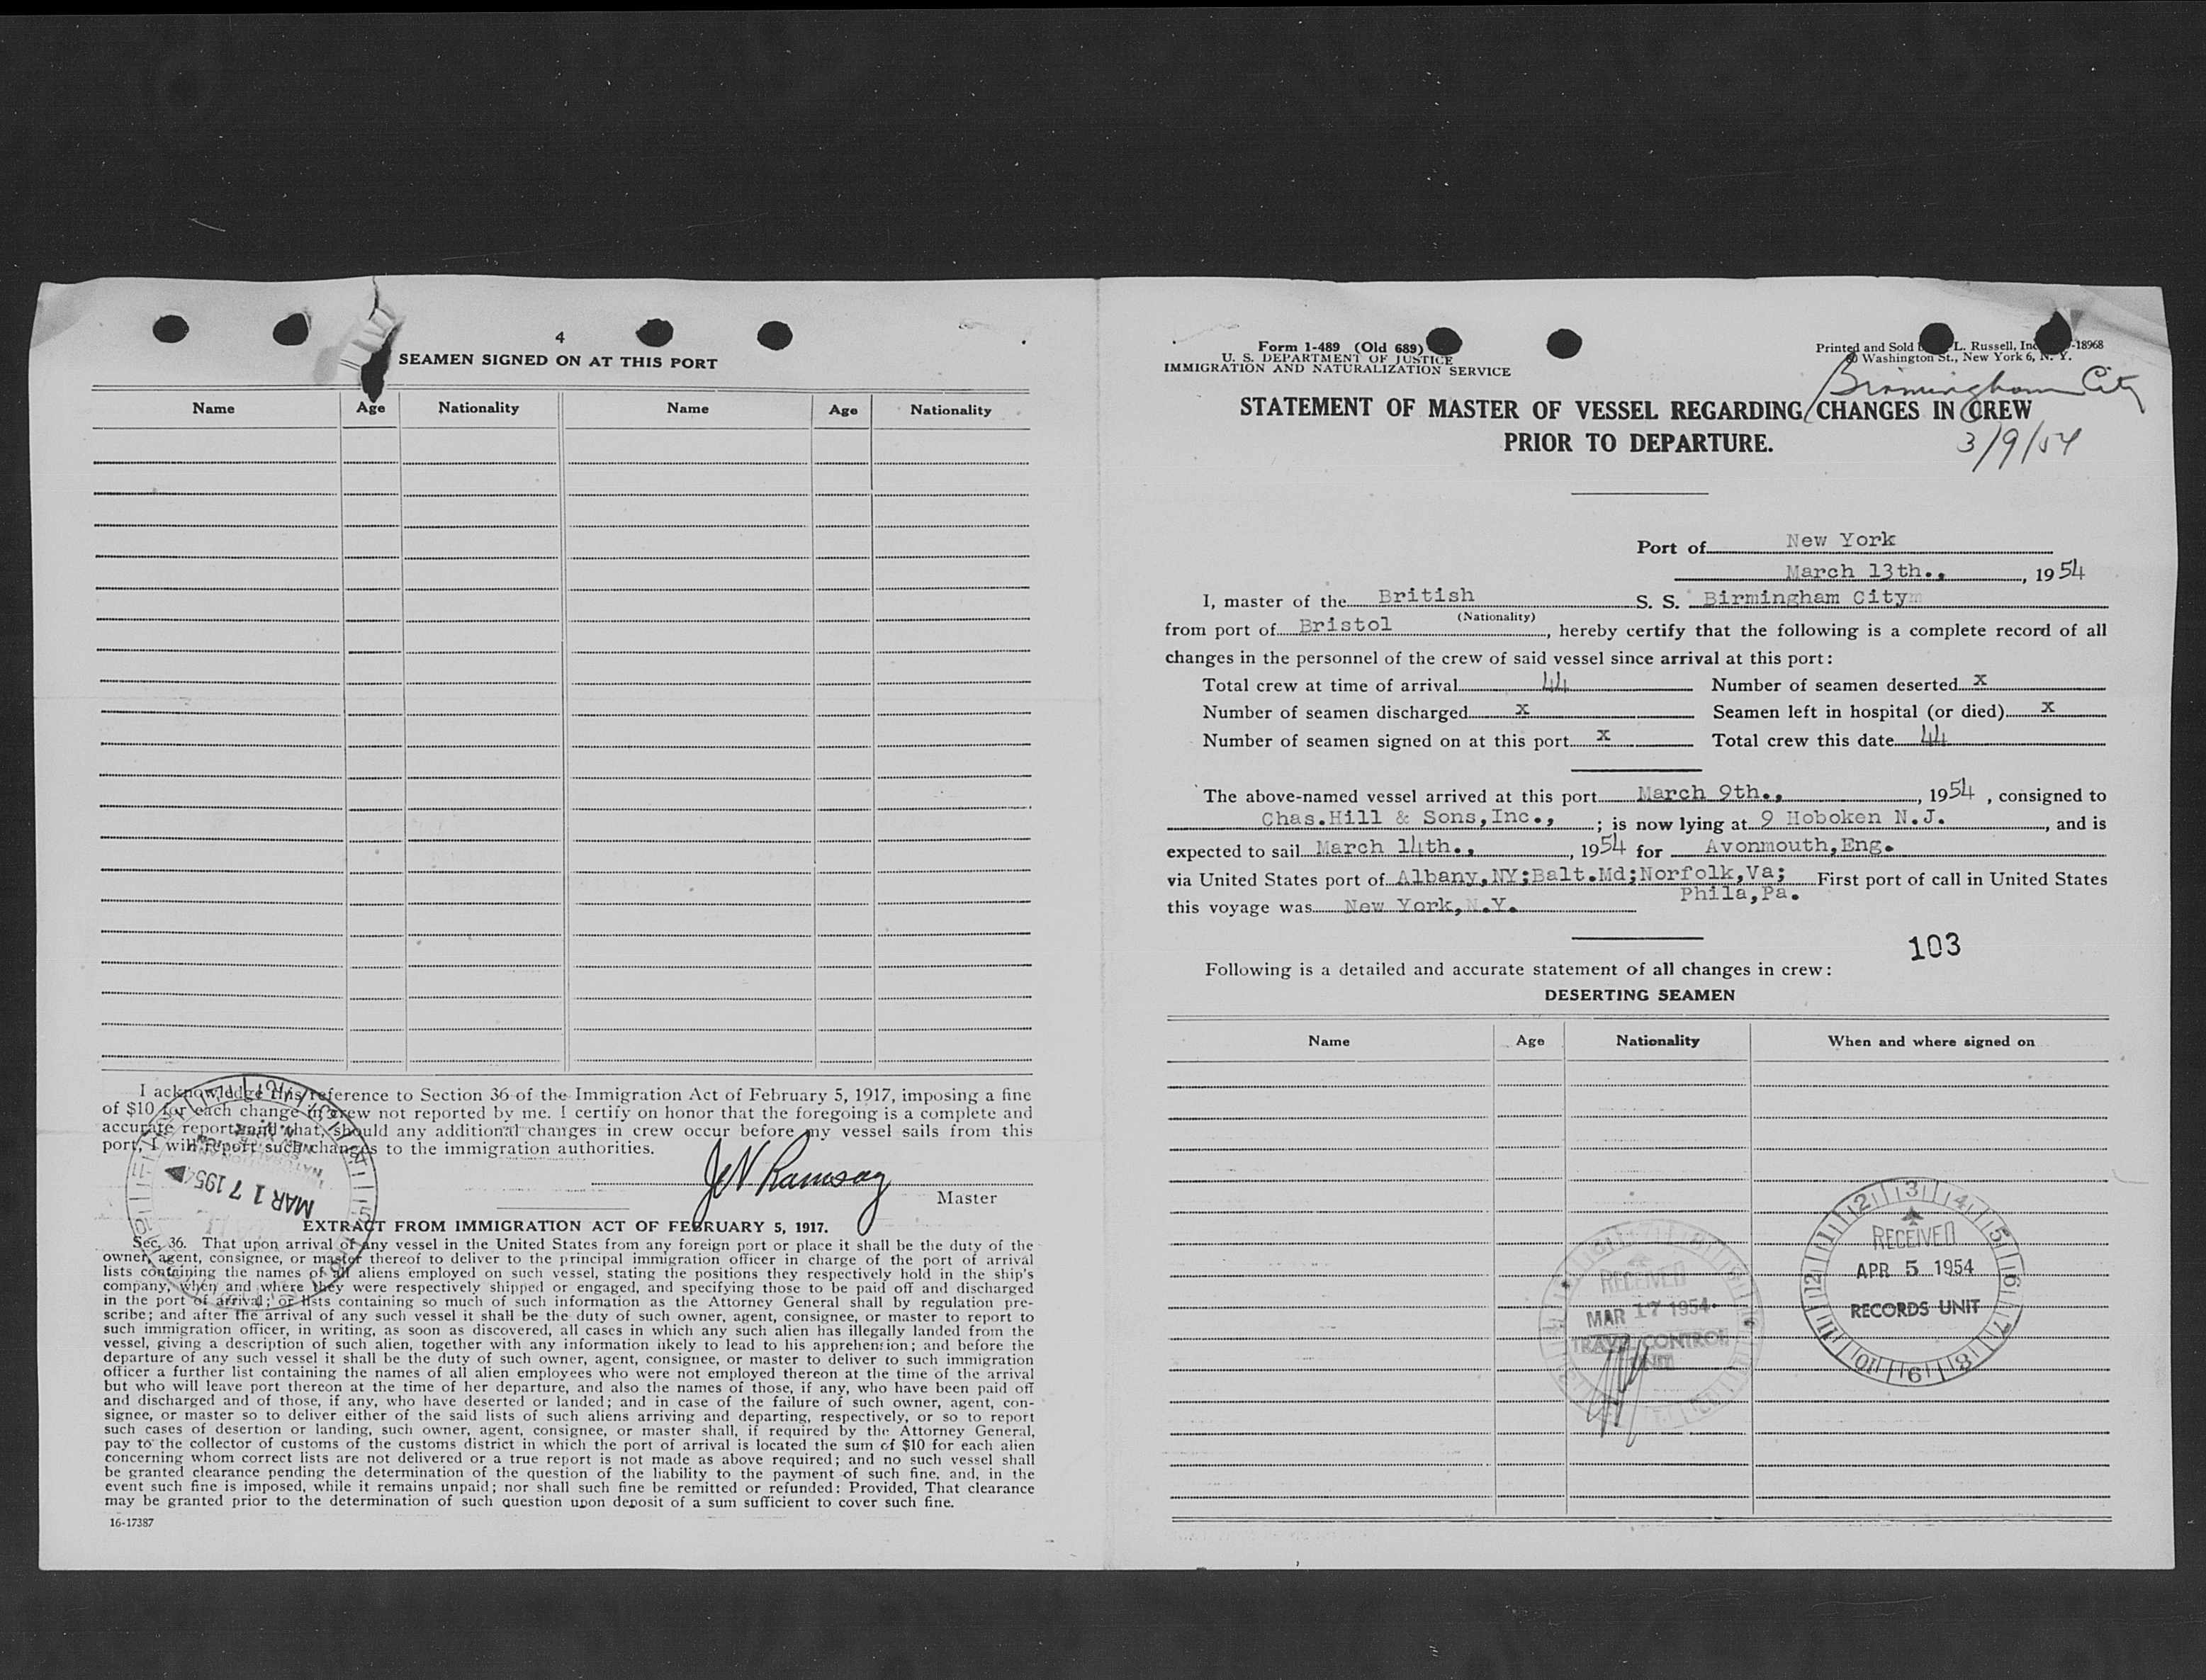 4
SEAMEN SIGNED ON AT THIS PORT
Name Age Nationality Name Age Nationality
I acknowledge this reference to Section 36 of the Immigration Act of February 5, 1917, imposing a fine
of $10 for each change in crew not reported by me. I certify on honor that the foregoing is a complete and
accurate report and that, should any additional changes in crew occur before my vessel sails from this
port, I will report such changes to the immigration authorities.
Ramsay
Master
MAR 17 1954
EXTRACT FROM IMMIGRATION ACT OF FEBRUARY 5, 1917.
Sec. 36. That upon arrival of any vessel in the United States from any foreign port or place it shall be the duty of the
owner, agent, consignee, or master thereof to deliver to the principal immigration officer in charge of the port of arrival
lists containing the names of all aliens employed on such vessel, stating the positions they respectively hold in the ship's
company, when and where they were respectively shipped or engaged, and specifying those to be paid off and discharged
in the port of arrival; or lists containing so much of such information as the Attorney General shall by regulation pre-
scribe; and after the arrival of any such vessel it shall be the duty of such owner, agent, consignee, or master to report to
such immigration officer, in writing, as soon as discovered, all cases in which any such alien has illegally landed from the
vessel, giving a description of such alien, together with any information likely to lead to his apprehension; and before the
departure of any such vessel it shall be the duty of such owner, agent, consignee, or master to deliver to such immigration
officer a further list containing the names of all alien employees who were not employed thereon at the time of the arrival
but who will leave port thereon at the time of her departure, and also the names of those, if any, who have been paid off
and discharged and of those, if any, who have deserted or landed; and in case of the failure of such owner, agent, con-
signee, or master so to deliver either of the said lists of such aliens arriving and departing, respectively, or so to report
such cases of desertion or landing, such owner, agent, consignee, or master shall, if required by the Attorney General,
pay to the collector of customs of the customs district in which the port of arrival is located the sum of $10 for each alien
concerning whom correct lists are not delivered or a true report is not made as above required; and no such vessel shall
be granted clearance pending the determination of the question of the liability to the payment of such fine, and, in the
event such fine is imposed, while it remains unpaid; nor shall such fine be remitted or refunded: Provided, That clearance
may be granted prior to the determination of such question upon deposit of a sum sufficient to cover such fine.
16-17387
Form 1-489 (Old 689)
U. S. DEPARTMENT OF JUSTICE
IMMIGRATION AND NATURALIZATION SERVICE
Printed and Sold L. Russell, Inc -18968
Washington St., New York 6, N. Y.
Birmingham City
STATEMENT OF MASTER OF VESSEL REGARDING CHANGES IN CREW
PRIOR TO DEPARTURE.
3/9/54
Port of New York
March 13th., , 1954
I, master of the British S. S. Birmingham City
(Nationality)
from port of Bristol , hereby certify that the following is a complete record of all
changes in the personnel of the crew of said vessel since arrival at this port:
Total crew at time of arrival 44 Number of seamen deserted x
Number of seamen discharged x Seamen left in hospital (or died) x
Number of seamen signed on at this port x Total crew this date 44
The above-named vessel arrived at this port March 9th., , 1954 , consigned to
Chas.Hill & Sons,Inc., ; is now lying at 9 Hoboken N.J. , and is
expected to sail March 14th., , 1954 for Avonmouth,Eng.
via United States port of Albany,NY;Balt.Md;Norfolk,Va; First port of call in United States
Phila,Pa.
this voyage was New York,N.Y.
103
Following is a detailed and accurate statement of all changes in crew:
DESERTING SEAMEN
Name Age Nationality When and where signed on
RECEIVED
MAR 17 1954
TRAVEL CONTROL
UNIT
RECEIVED
APR 5 1954
RECORDS UNIT